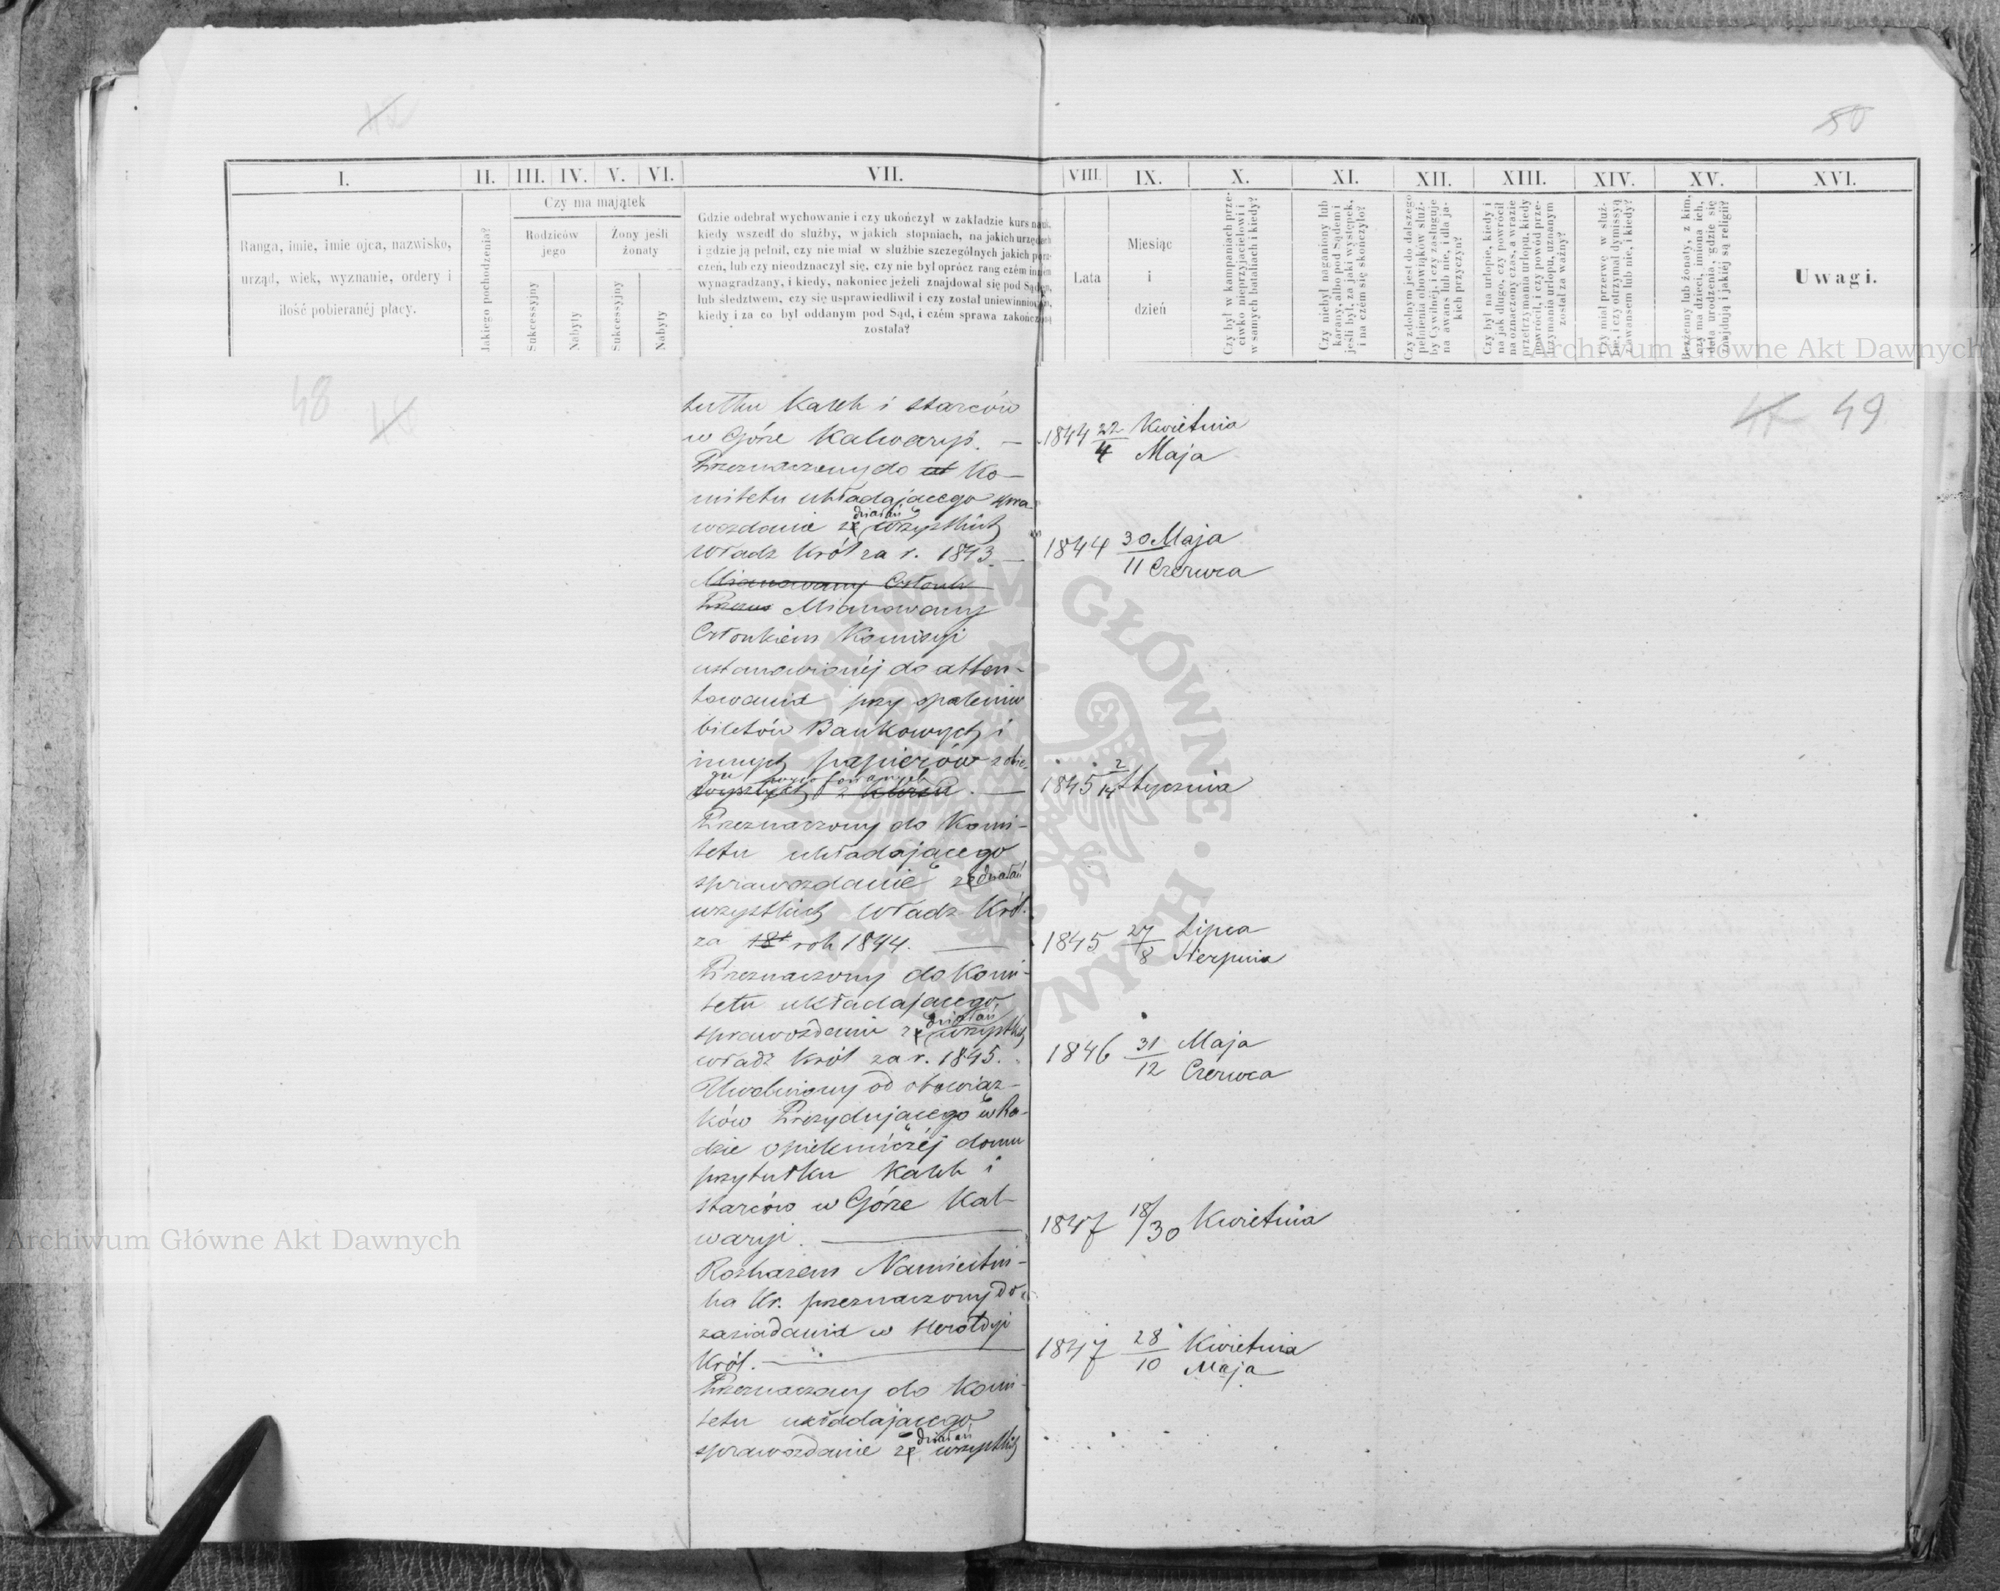 50
I.
II.
III.
IV.
V.
VI.
VII.
VIII.
IX.
X.
XI.
XII.
XIII.
XIV.
XV.
XVI.
Ranga, imie, imie ojca, nazwisko,
urząd, wiek, wyznanie, ordery i
ilość pobieranéj płacy.
Jakiego pochodzenia?
Czy ma majątek
Rodziców
jego
Żony jeśli
żonaty
Sukcessyjny
Nabyty
Sukcessyjny
Nabyty
Gdzie odebrał wychowanie i czy ukończył w zakładzie kurs nauk,
kiedy wszedł do służby, w jakich stopniach, na jakich urzędach
i gdzie ją pełnił, czy nie miał w służbie szczególnych jakich poru-
czeń, lub czy nieodznaczył się, czy nie był oprócz rang czém innem
wynagradzany, i kiedy, nakoniec jeżeli znajdował się pod Sądem,
lub śledztwem, czy się usprawiedliwił i czy został uniewinniony,
kiedy i za co był oddanym pod Sąd, i czém sprawa zakończoną
została?
Lata
Miesiąc
i
dzień
Czy był w kampaniach prze-
ciwko nieprzyjacielowi i
w samych bataliach i kiedy?
Czy niebył naganiony lub
karany, albo pod Sądem i
jeśli był, za jaki występek,
i na czém się skończyło?
Czy zdolnym jest do dalszego
pełnienia obowiązków służ-
by Cywilnéj, i czy zasługuje
na awans lub nie, i dla ja-
kich przyczyn?
Czy był na urlopie, kiedy i
na jak długo, czy powrócił
na oznaczony czas, a w razie
przetrzymania urlopu, kiedy
powrócił, i czy powód prze-
trzymania urlopu, uznanym
został za ważny?
Czy miał przerwę w służ-
bie, i czy otrzymał dymissyą
z awansem lub nie, i kiedy?
Bezżenny lub żonaty, z kim,
czy ma dzieci, imiona ich,
data urodzenia, gdzie się
znajdują i jakiéj są religii?
Uwagi.
48
49
tułku Kalek i starców
w Górze Kalwaryi. —
1844 22/4 Kwietnia Maja
Przeznaczony do Ko-
mitetu układającego spra-
wozdanie z działań wszystkich
Władz Król za r. 1843. —
1844 30/11 Maja Czerwca
Mianowany Członk
Przez Mianowany
Członkiem Komisyi
ustanowionéj do atten-
towania przy spaleniu
biletów Bankowych i
innych papierów z obie-
gu wycofanych. —
1845 2/14 Stycznia
Przeznaczony do Komi-
tetu układającego
sprawozdanie z działań
wszystkich Władz Król.
za rok 1844. —
1845 27/8 Lipca Sierpnia
Przeznaczony do Komi-
tetu układającego
sprawozdanie z działań wszystkich
władz Król za r. 1845.
1846 31/12 Maja Czerwca
Uwolniony od obowiąz-
ków Prezydującego w Ra-
dzie opiekuńczéj domu
przytułku Kalek i
starców w Górze Kal-
waryi. —
1847 18/30 Kwietnia
Rozkazem Namiestni-
ka Kr. przeznaczony do
zasiadania w Heroldyi
Król. —
1847 28/10 Kwietnia Maja
Przeznaczony do Komi-
tetu układającego
sprawozdanie z działań wszystkich
Archiwum Główne Akt Dawnych
Archiwum Główne Akt Dawnych
ARCHIWUM GŁÓWNE AKT DAWNYCH